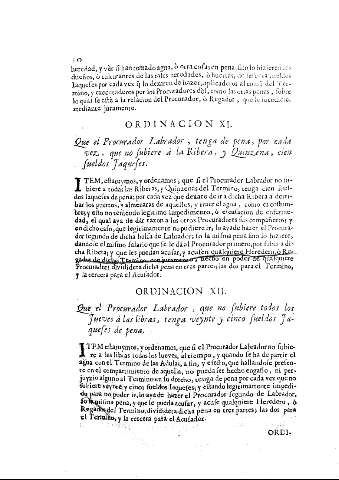 10
heredad, y vèr si han tomado agua, ò otra cosa en pena, sino lo hizieren los
dueños, ò cultivantes de las tales heredades, ò huertos, de sesenta sueldos
Jaqueses por cada vez q̃ lo dexaren de hazer, aplicaderos al comũ del Ter-
mino, y executaderos por los Procuradores del, como las otras penas, sobre
lo qual se estè à la relacion del Procurador, ò Regador, que lo denunciare,
mediante juramento.
ORDINACION XI.
Que el Procurador Labrador, tenga de pena, por cada
vez, que no subiere à la Ribera, y Quinzena, cien
sueldos Jaqueses.
ITEM, estatuymos, y ordenamos, que si el Procurador Labrador no su-
biere à todas las Riberas, y Quinzenas del Termino, tenga cien suel-
dos Jaqueses de pena; por cada vez que dexare de ir à dicha Ribera à derri-
bar los puntos, y almenaras de aquellos, y traer el agua, como es costum-
bre, y esto no teniendo legitimo impedimento, ò escusacion de enferme-
dad, el qual aya de dar razon à los otros Procuradores sus compañeros; y
en dicho caso, que legitimamente no pudiere ir, lo aya de hazer el Procura-
dor segundo de dicha bolsa de Labrador; en la misma pena sino lo hiziere,
dandole el mismo salario que se le dà al Procurador primero, por subir à di-
cha Ribera; y que les puedan acusar, y acusen qualquiere Heredero, ò Re-
gador de dicho Termino, con juramento, y hecho en poder de qualquiere
Procurador; divididera dicha pena en tres partes; las dos para el Termino,
y la tercera para el Acusador.
ORDINACION XII.
Que el Procurador Labrador, que no subiere todos los
Jueves à las libras, tenga veynte y cinco sueldos Ja-
queses de pena.
ITEM estatuymos, y ordenamos, que si el Procurador Labrador no subie-
re à las libras todos los Jueves, al tiempo, y quando se ha de partir el
agua con el Termino de las Adulas, à fin, y efecto, que hallandose presen-
te en el compartimiento de aquella, no pueda ser hecho engaño, ni per-
juyzio alguno al Termino en su drecho, tenga de pena por cada vez que no
subiere veynte y cinco sueldos Jaqueses; y estando legitimamente impedi-
do para no poder ir, lo aya de hazer el Procurador segundo de Labrador,
so la misma pena, y que le pueda acusar, y acuse qualquiere Heredero, ò
Regador del Termino, divididera dicha pena en tres partes; las dos para
el Termino, y la tercera para el Acusador.
ORDI-